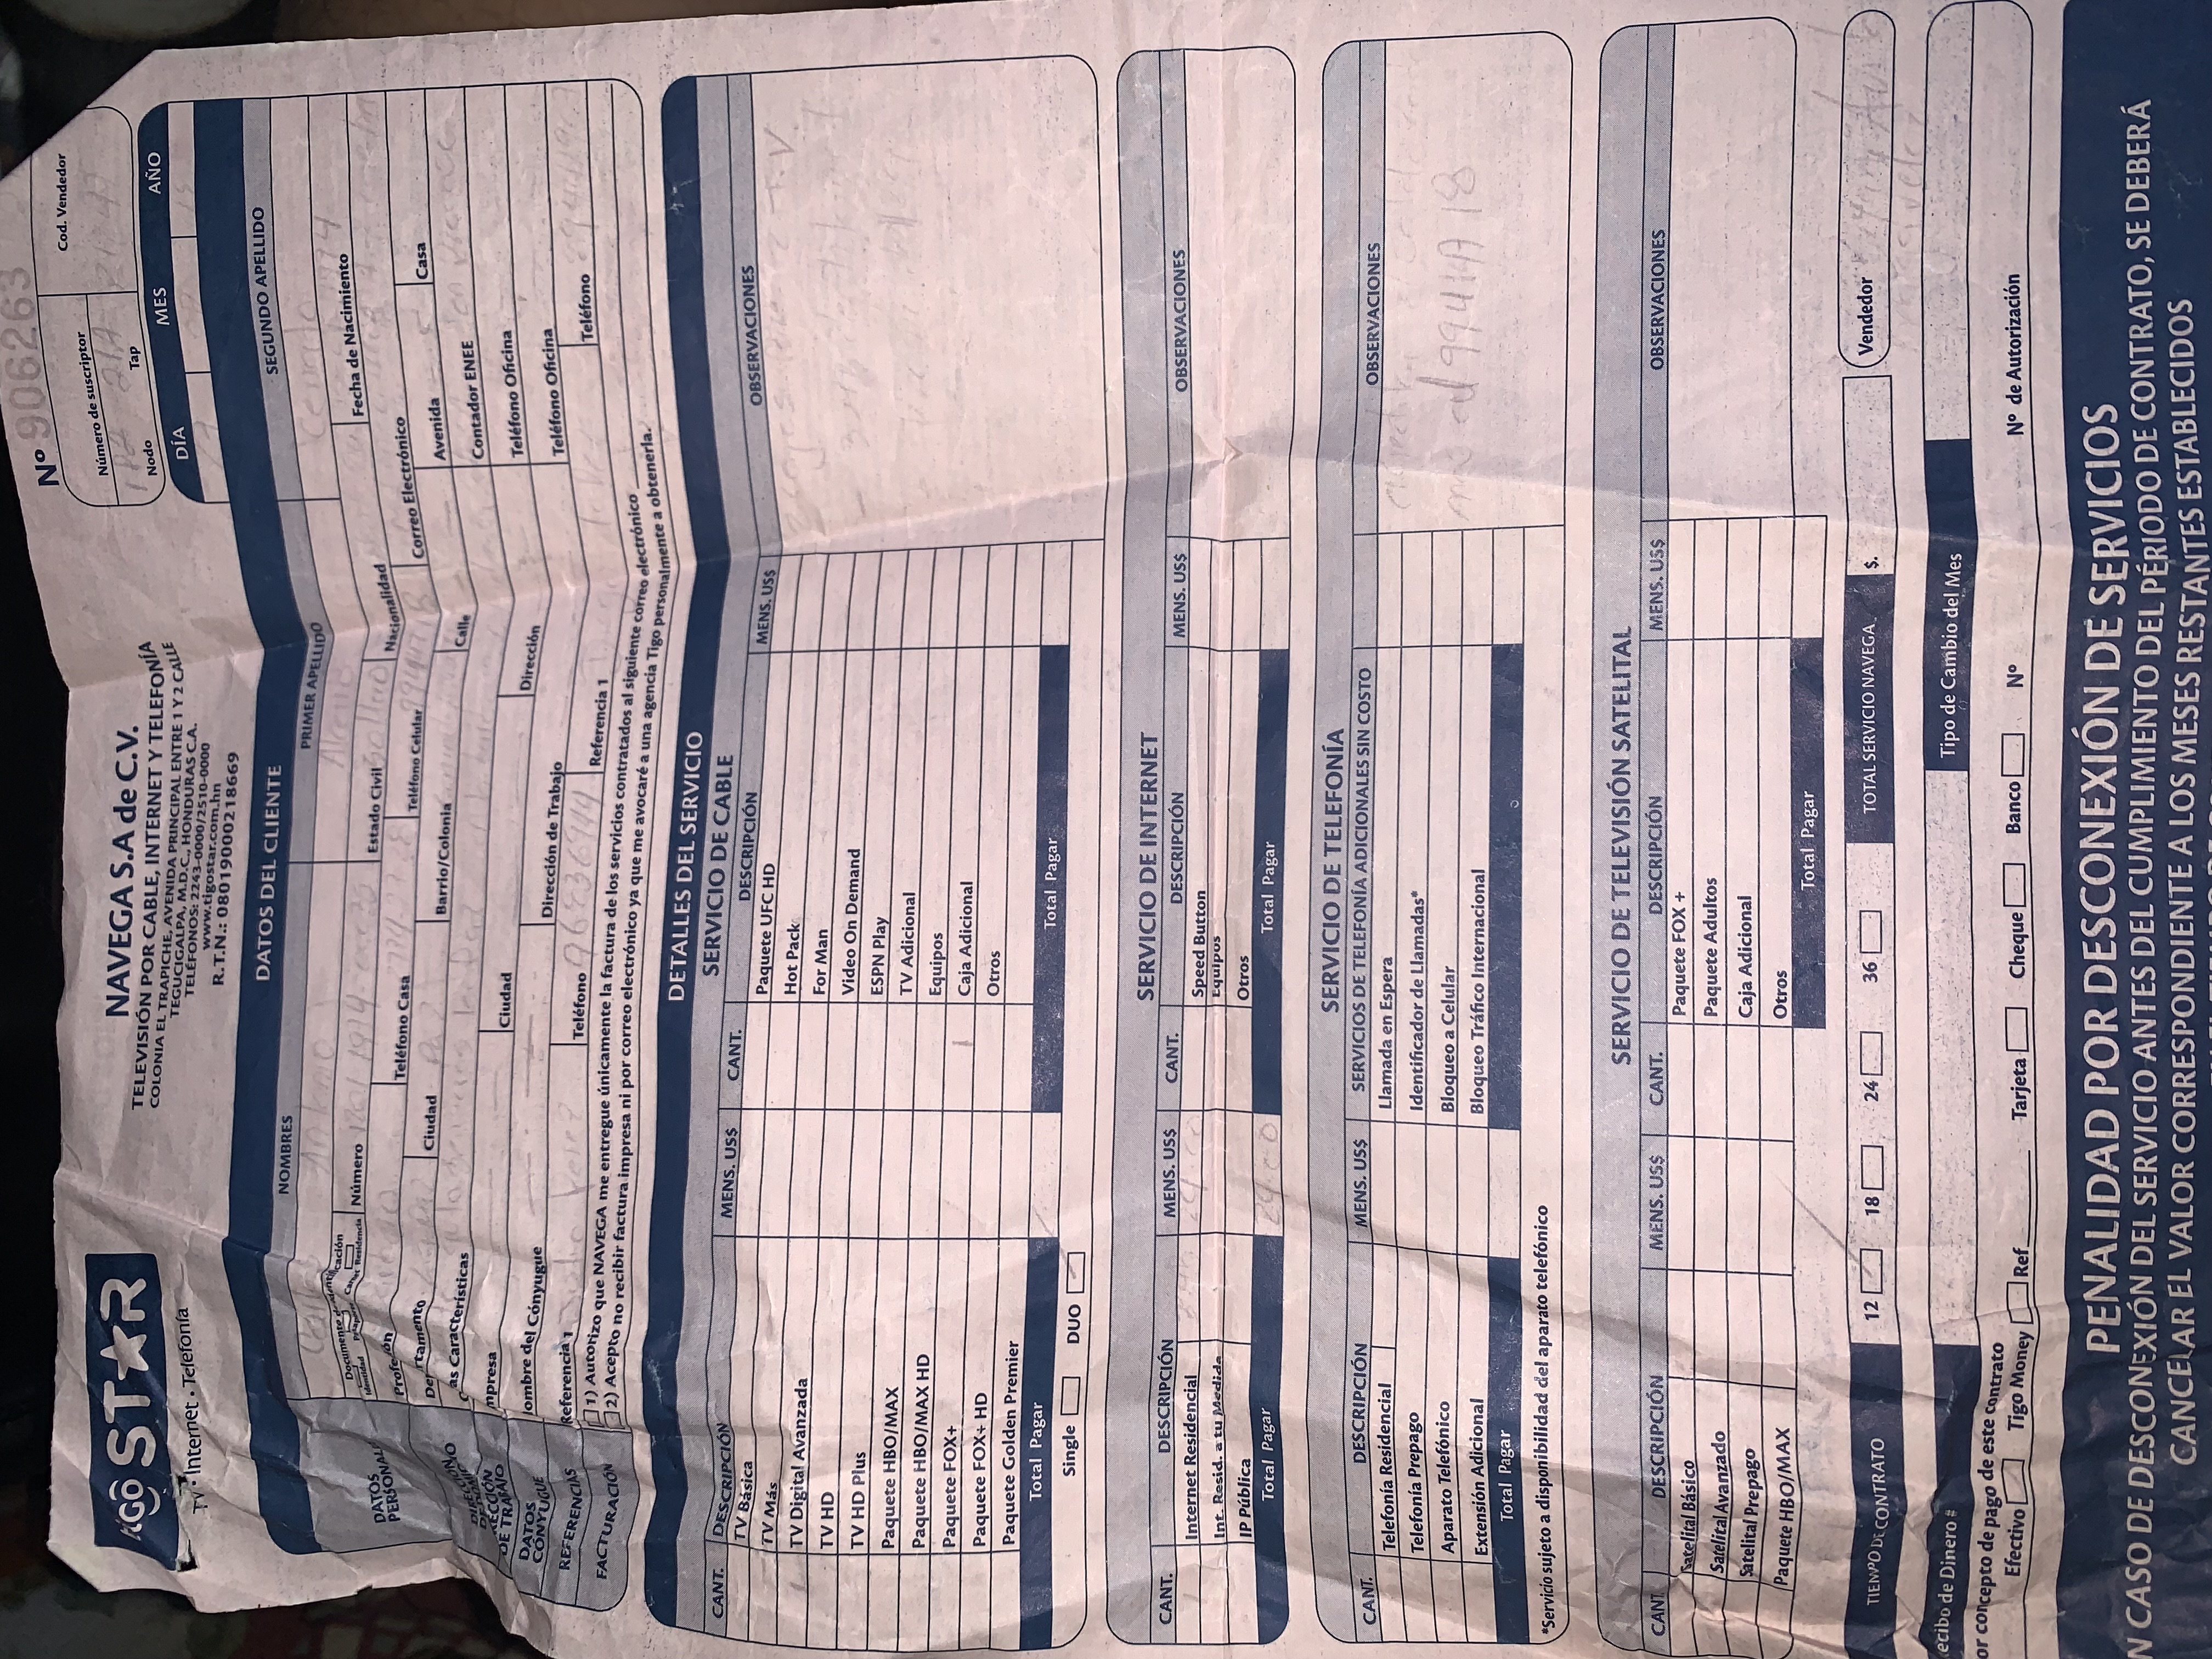 Nº 906263
Número de suscriptor
Cod. Vendedor
Nodo Tap
DÍA MES AÑO
tiGô STAR
TV • Internet • Telefonía
NAVEGA S.A de C.V.
TELEVISIÓN POR CABLE, INTERNET Y TELEFONÍA
COLONIA EL TRAPICHE, AVENIDA PRINCIPAL ENTRE 1 Y 2 CALLE
TEGUCIGALPA, M.D.C., HONDURAS C.A.
TELÉFONOS: 2243-0000/2510-0000
www.tigostar.com.hn
R.T.N.: 08019000218669
DATOS DEL CLIENTE
NOMBRES PRIMER APELLIDO SEGUNDO APELLIDO
Antonio
DATOS PERSONAL
Documento de identificación
Identidad Pasaporte Carnet Residencia
Número Estado Civil Soltero Nacionalidad Fecha de Nacimiento
Profesión Teléfono Casa Teléfono Celular Correo Electrónico
DIRECCIÓN DE DOMICILIO
Departamento Ciudad Barrio/Colonia Calle Avenida Casa
as Características Contador ENEE
RECCIÓN DE TRABAJO
mpresa Ciudad Dirección Teléfono Oficina
DATOS CÓNYUGUE
Nombre del Cónyugue Dirección de Trabajo Teléfono Oficina
REFERENCIAS
Referencia 1 Teléfono Referencia 1 Teléfono
FACTURACIÓN
1) Autorizo que NAVEGA me entregue únicamente la factura de los servicios contratados al siguiente correo electrónico
2) Acepto no recibir factura impresa ni por correo electrónico ya que me avocaré a una agencia Tigo personalmente a obtenerla.
DETALLES DEL SERVICIO
SERVICIO DE CABLE
CANT. DESCRIPCIÓN MENS. US$ CANT. DESCRIPCIÓN MENS. US$ OBSERVACIONES
TV Básica Paquete UFC HD
TV Más Hot Pack
TV Digital Avanzada For Man
TV HD Video On Demand
TV HD Plus ESPN Play
Paquete HBO/MAX TV Adicional
Paquete HBO/MAX HD Equipos
Paquete FOX+ 1 Caja Adicional
Paquete FOX+ HD Otros
Paquete Golden Premier
Total Pagar Total Pagar
Single DUO
T.V.
SERVICIO DE INTERNET
CANT. DESCRIPCIÓN MENS. US$ CANT. DESCRIPCIÓN MENS. US$ OBSERVACIONES
Internet Residencial Speed Button
Int. Resid. a tu Medida Equipos
IP Pública Otros
Total Pagar Total Pagar
SERVICIO DE TELEFONÍA
CANT. DESCRIPCIÓN MENS. US$ SERVICIOS DE TELEFONÍA ADICIONALES SIN COSTO OBSERVACIONES
Telefonía Residencial Llamada en Espera
Telefonía Prepago Identificador de Llamadas*
Aparato Telefónico Bloqueo a Celular
Extensión Adicional Bloqueo Tráfico Internacional
Total Pagar
*Servicio sujeto a disponibilidad del aparato telefónico
SERVICIO DE TELEVISIÓN SATELITAL
CANT DESCRIPCIÓN MENS. US$ CANT. DESCRIPCIÓN MENS. US$ OBSERVACIONES
Satelital Básico Paquete FOX +
Satelital Avanzado Paquete Adultos
Satelital Prepago Caja Adicional
Paquete HBO/MAX Otros
Total Pagar
TIEMPO DE CONTRATO 12 18 24 36 TOTAL SERVICIO NAVEGA $. Vendedor
ecibo de Dinero # Tipo de Cambio del Mes
or concepto de pago de este contrato
Efectivo Tigo Money Ref Tarjeta Cheque Banco Nº Nº de Autorización
PENALIDAD POR DESCONEXIÓN DE SERVICIOS
N CASO DE DESCONEXIÓN DEL SERVICIO ANTES DEL CUMPLIMIENTO DEL PÉRIODO DE CONTRATO, SE DEBERÁ
CANCELAR EL VALOR CORRESPONDIENTE A LOS MESES RESTANTES ESTABLECIDOS